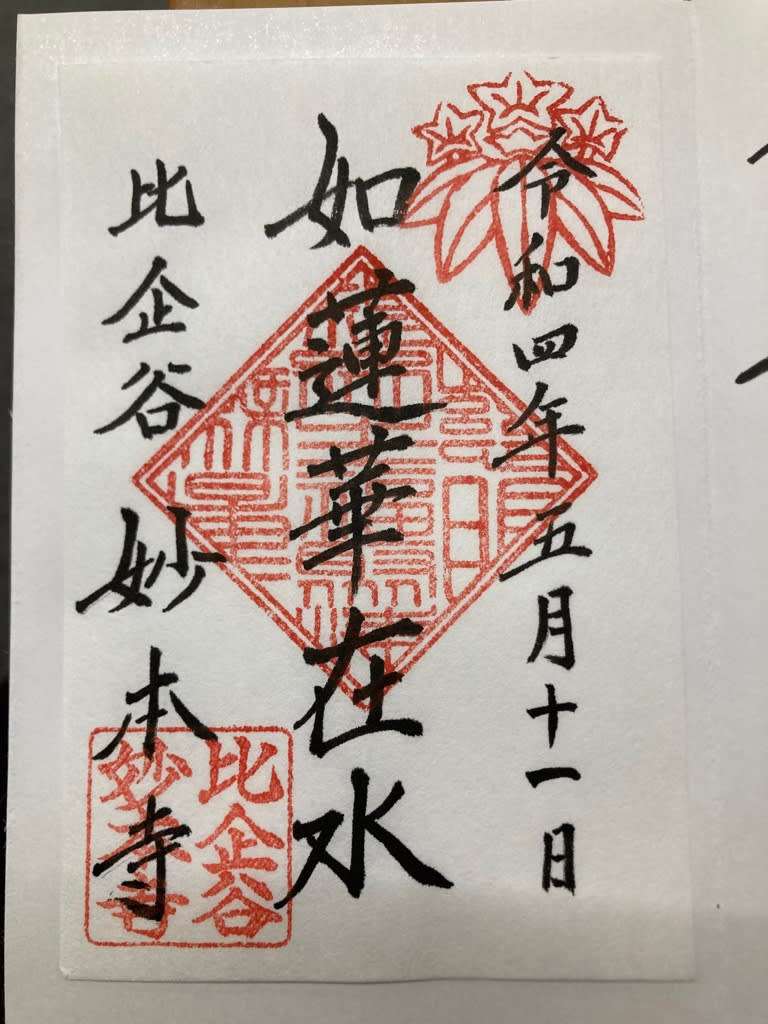 令和四年五月十一日
如蓮華在水
比企谷 妙本寺
比企谷
妙本寺